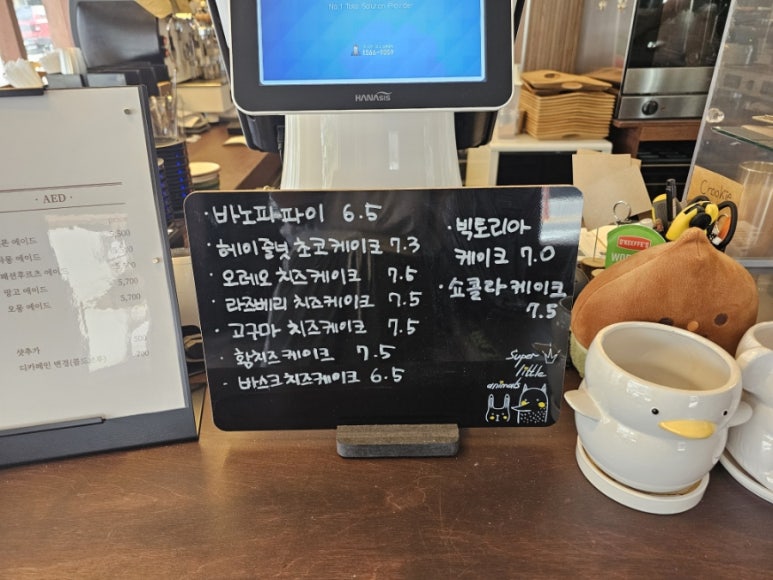 No.1 Total Solution Provider
1566-9059
HANAsis
· AED ·
5,500
5,700
망고 에이드 5,700
오몽 에이드
샷추가
디카페인 변경(콜드브루)
· 바노파파이 6.5
· 헤이즐넛 초코케이크 7.3
· 오레오 치즈케이크 7.5
· 라즈베리 치즈케이크 7.5
· 고구마 치즈케이크 7.5
· 황치즈케이크 7.5
· 바스크 치즈케이크 6.5
· 빅토리아
케이크 7.0
· 쇼콜라케이크
7.5
Super
little
animals
Crookie
O'KEEFFE'S